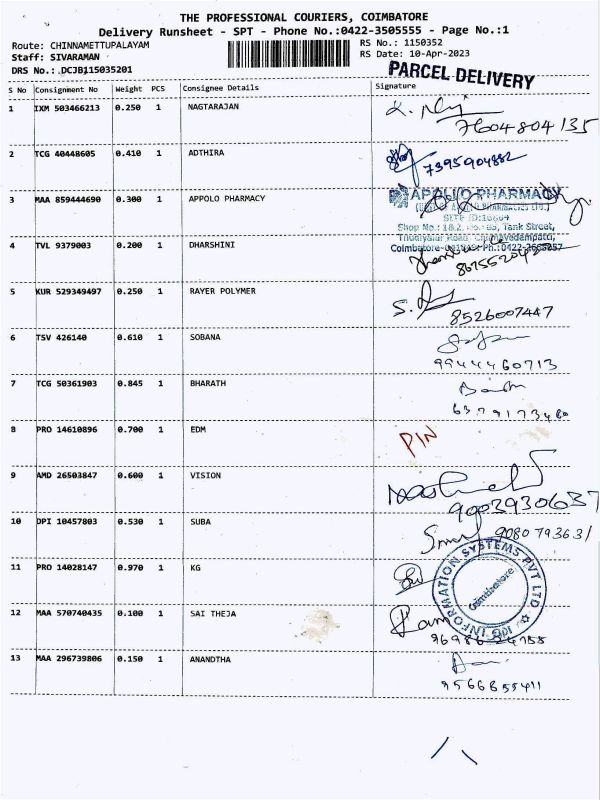 THE PROFESSIONAL COURIERS, COIMBATORE
Delivery Runsheet - SPT - Phone No.:0422-3505555 - Page No.:1
Route: CHINNAMETTUPALAYAM RS No.: 1150352
Staff: SIVARAMAN RS Date: 10-Apr-2023
DRS No.: DCJB115035201 PARCEL DELIVERY
S No Consignment No Weight PCS Consignee Details Signature
1 IXM 503466213 0.250 1 NAGTARAJAN
7604804135
2 TCG 40448605 0.410 1 ADTHIRA
7395904882
3 MAA 859444690 0.300 1 APPOLO PHARMACY APOLLO PHARMACY
Tank Street,
4 TVL 9379003 0.200 1 DHARSHINI
5 KUR 529349497 0.250 1 RAYER POLYMER
8526007447
6 TSV 426140 0.610 1 SOBANA
9944460713
7 TCG 50361903 0.845 1 BHARATH
8 PRO 14610896 0.700 1 EDM PIN
9 AMD 26503847 0.600 1 VISION
9003930637
10 DPI 10457803 0.530 1 SUBA
11 PRO 14028147 0.970 1 KG INFORMATION SYSTEMS PVT LTD
Coimbatore
12 MAA 570740435 0.100 1 SAI THEJA
13 MAA 296739806 0.150 1 ANANDTHA
9566855411